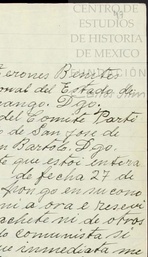 CENTRO DE
ESTUDIOS
DE HISTORIA
DE MEXICO
erones Benites
onal del Estado de
ango. Dgo.
del Comité Parti
o de San Jose de
n Bartolo. Dgo.
te que estoi entera
de fecha 27 de
pongo en su cono
ni a ora e resevi
achete ni de otros
lo comunista si
ue inmediata me